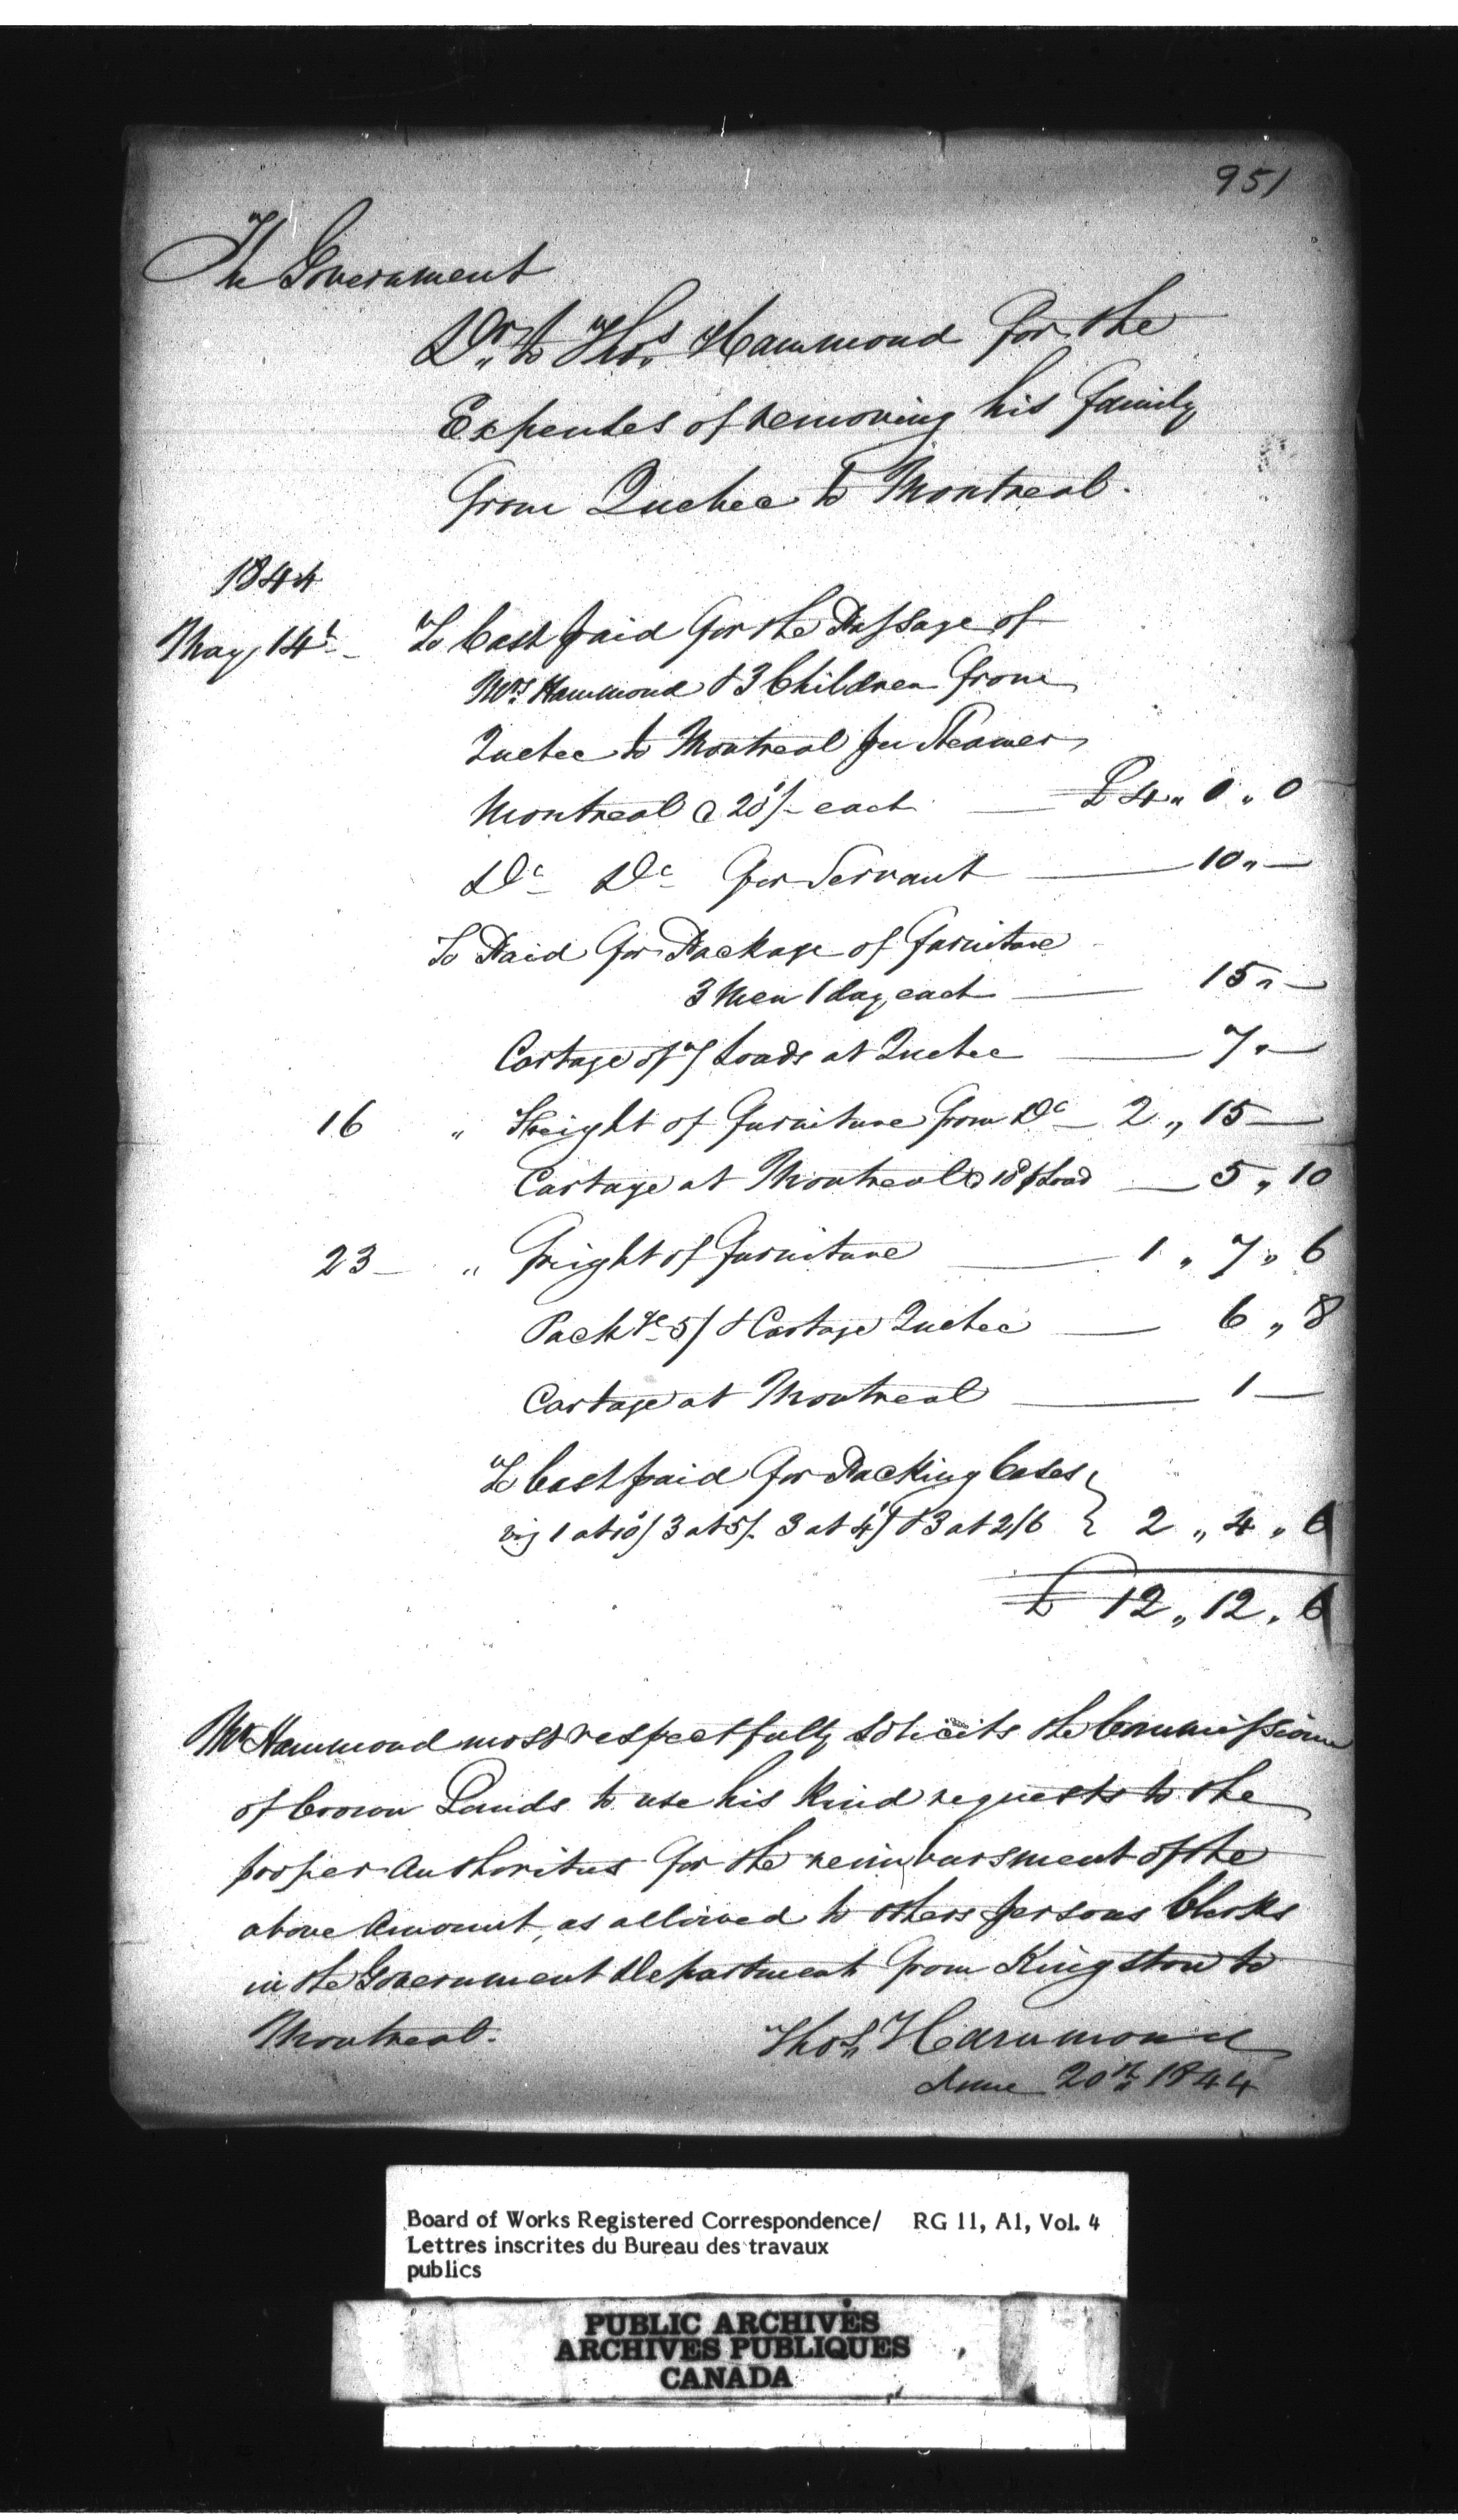 951
The Government
Dr. to Thos. Hammond for the
Expenses of removing his family
from Quebec to Montreal.
1844
May 14th To Cash paid for the Passage of
Mrs. Hammond & 3 Children from
Quebec to Montreal per Steamer
Montreal @ 20/- each £ 4 „ 0 „ 0
Do Do for Servant 10 „ —
To Paid for Package of furniture
3 Men 1 day each 15 „ —
Cartage of 7 Loads at Quebec 7 „ —
16 „ Freight of furniture from Do 2 „ 15 —
Cartage at Montreal @ 10d p Load 5 „ 10
23 „ freight of furniture 1 „ 7 „ 6
Packge 5/ & Cartage Quebec 6 „ 8
Cartage at Montreal 1 —
To Cash paid for Packing Cases
viz 1 at 10/ 3 at 5/- 3 at 4/ & 3 at 2/6 } 2 „ 4 „ 6
£ 12 „ 12 „ 6
Mr Hammond most respectfully solicits the Commissioner
of Crown Lands to use his kind requests to the
proper Authorities for the reimbursment of the
above Amount, as allowed to others persons Clerks
in the Government Department from Kingston to
Montreal.
Thos. Hammond
June 20th 1844
Board of Works Registered Correspondence/ RG 11, A1, Vol. 4
Lettres inscrites du Bureau des travaux
publics
PUBLIC ARCHIVES
ARCHIVES PUBLIQUES
CANADA